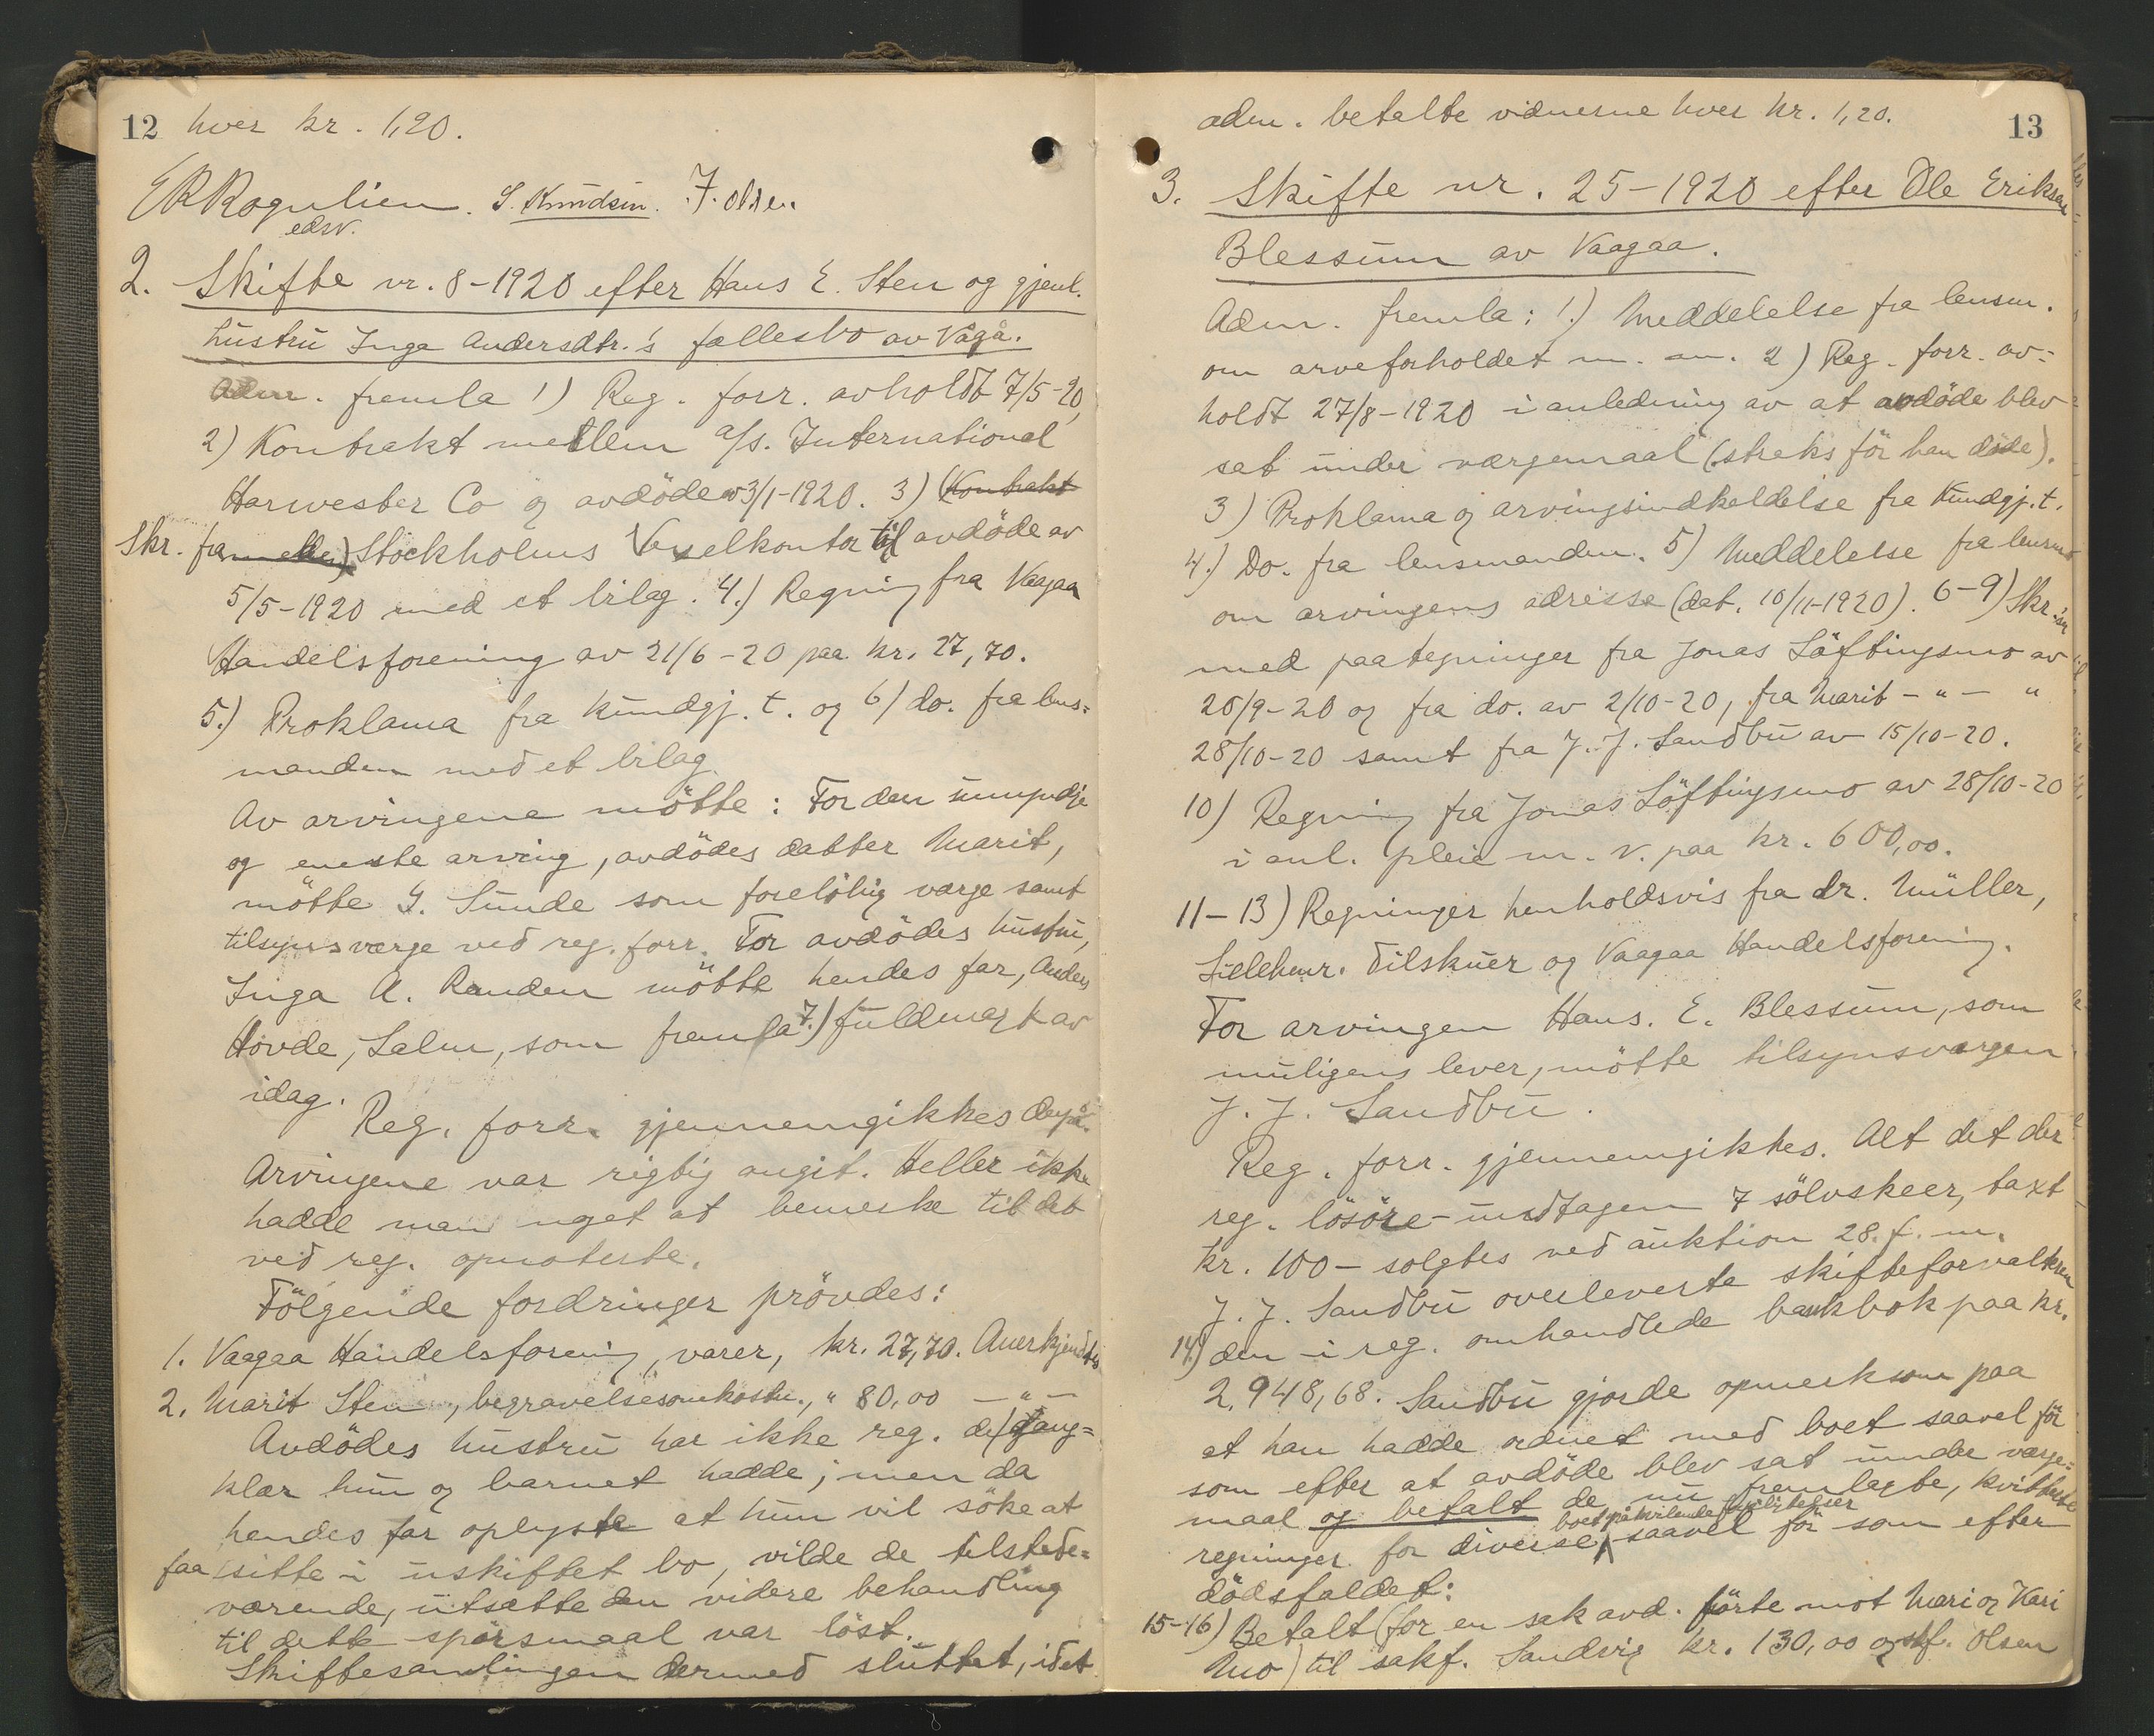 12 hver kr. 1,20.
E R Rognlien. S. Knudsen. J. Olsen
edsv.
2. Skifte nr. 8-1920 efter Hans E. Sten og gjenl.
hustru Inga Andersdtr.'s fællesbo av Vågå.
Adm. fremla 1) Reg. forr. avholdt 7/5-20,
2) Kontrakt mellem A/s. International
Harwester Co og avdöde av 3/1-1920. 3) (Kontrakt
Skr. fra mellem) Stockholms Vexelkontor til avdöde av
5/5-1920 med et bilag. 4.) Regning fra Vaagaa
Handelsforening av 21/6-20 paa kr. 27,70.
5.) Proklama fra kundgj. t. og 6) do. fra lens=
manden med et bilag.
Av arvingene mötte: For den umyndige
og eneste arving, avdödes datter Marit,
mötte I. Sunde som forelöbig værge samt
tilsynsværge ved reg. forr. For avdödes hustru,
Inga A. Randen mötte hendes far, Anders
Hovde, Lalm, som fremla 7.) fuldmagt av
idag.
Reg. forr. gjennemgikkes
Arvingene var rigtig angit. Heller ikke
hadde man noget at bemerke til det
ved reg. opnoterte.
Fölgende fordringer prövdes:
1. Vaagaa Handelsforening, varer, kr. 27,70. Anerkjendtes
2. Marit Sten, begravelsesomkostn., " 80,00 — " —
Avdödes hustru har ikke reg. de gang=
klær hun og barnet hadde; men da
hendes far oplyste at hun vil söke at
faa sitte i uskiftet bo, vilde de tilstede=
værende, utsætte den videre behandling
til dette spörsmaal var löst.
Skiftesamlingen dermed sluttet, idet
adm. betalte vidnerne hver kr. 1,20. 13
3. Skifte nr. 25-1920 efter Ole Eriksen
Blessum av Vaagaa.
Adm. fremla: 1.) Meddelelse fra lensm.
om arveforholdet m. m. 2) Reg. forr. av=
holdt 27/8-1920 i anledning av at avdöde blev
sat under værgemaal (straks för han döde).
3) Proklama og arvingsindkaldelse fra Kundgj. t.
4.) Do. fra lensmanden. 5) Meddelelse fra lensmd
om arvingens adresse (dat. 10/11-1920). 6-9) Skr.'er
med paategninger fra Jonas Löftingsmo av
20/9-20 og fra do. av 2/10-20, fra Marit - " - "
28/10-20 samt fra J. J. Sandbu av 15/10-20.
10) Regning fra Jonas Löftingsmo av 28/10-20
i anl. pleie m. v. paa kr. 600,00.
11-13) Regninger henholdsvis fra dr. Müller,
Lillehmr. Tilskuer og Vaagaa Handelsforening.
For arvingen Hans. E. Blessum, som
muligens lever, mötte tilsynsværgen
J. J. Sandbu.
Reg. forr. gjennemgikkes. Alt det der
reg. lösöre - undtagen 7 sölvskeer, taxt
kr. 100 - solgtes ved auktion 28. f. m.
J. J. Sandbu overleverte skifteforvalteren
14) den i reg. omhandlede bankbok paa kr.
2.948,68. Sandbu gjorde opmerksom paa
at han hadde ordnet med boet saavel för
som efter at avdöde blev sat under værge=
maal og betalt de nu fremlagte, kvitterte
boet påhvilende forpligtelser
regninger for diverse, saavel för som efter
dödsfaldet:
15-16) Betalt (for en sak avd. förte mot Mari og Kari
Mo) til sakf. Sandvig kr. 130,00 og skf. Olsen